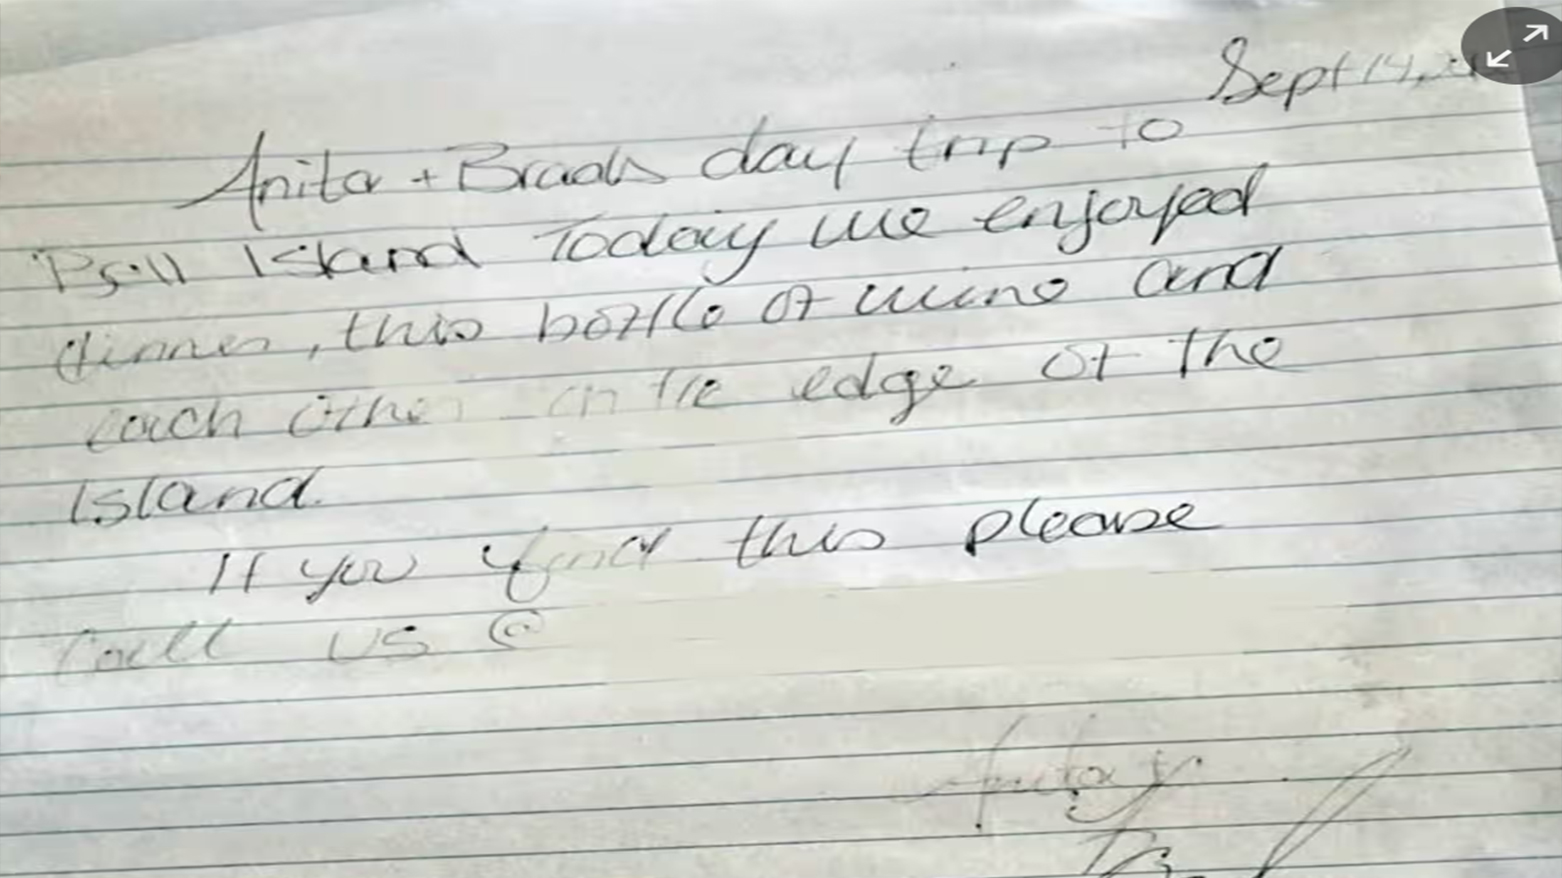 Sept 14, 
Anita + Brads day trip to
Bell Island Today we enjoyed
dinner, this bottle of wine and
each other on the edge of the
Island.
If you find this please
Call us @
Anita &